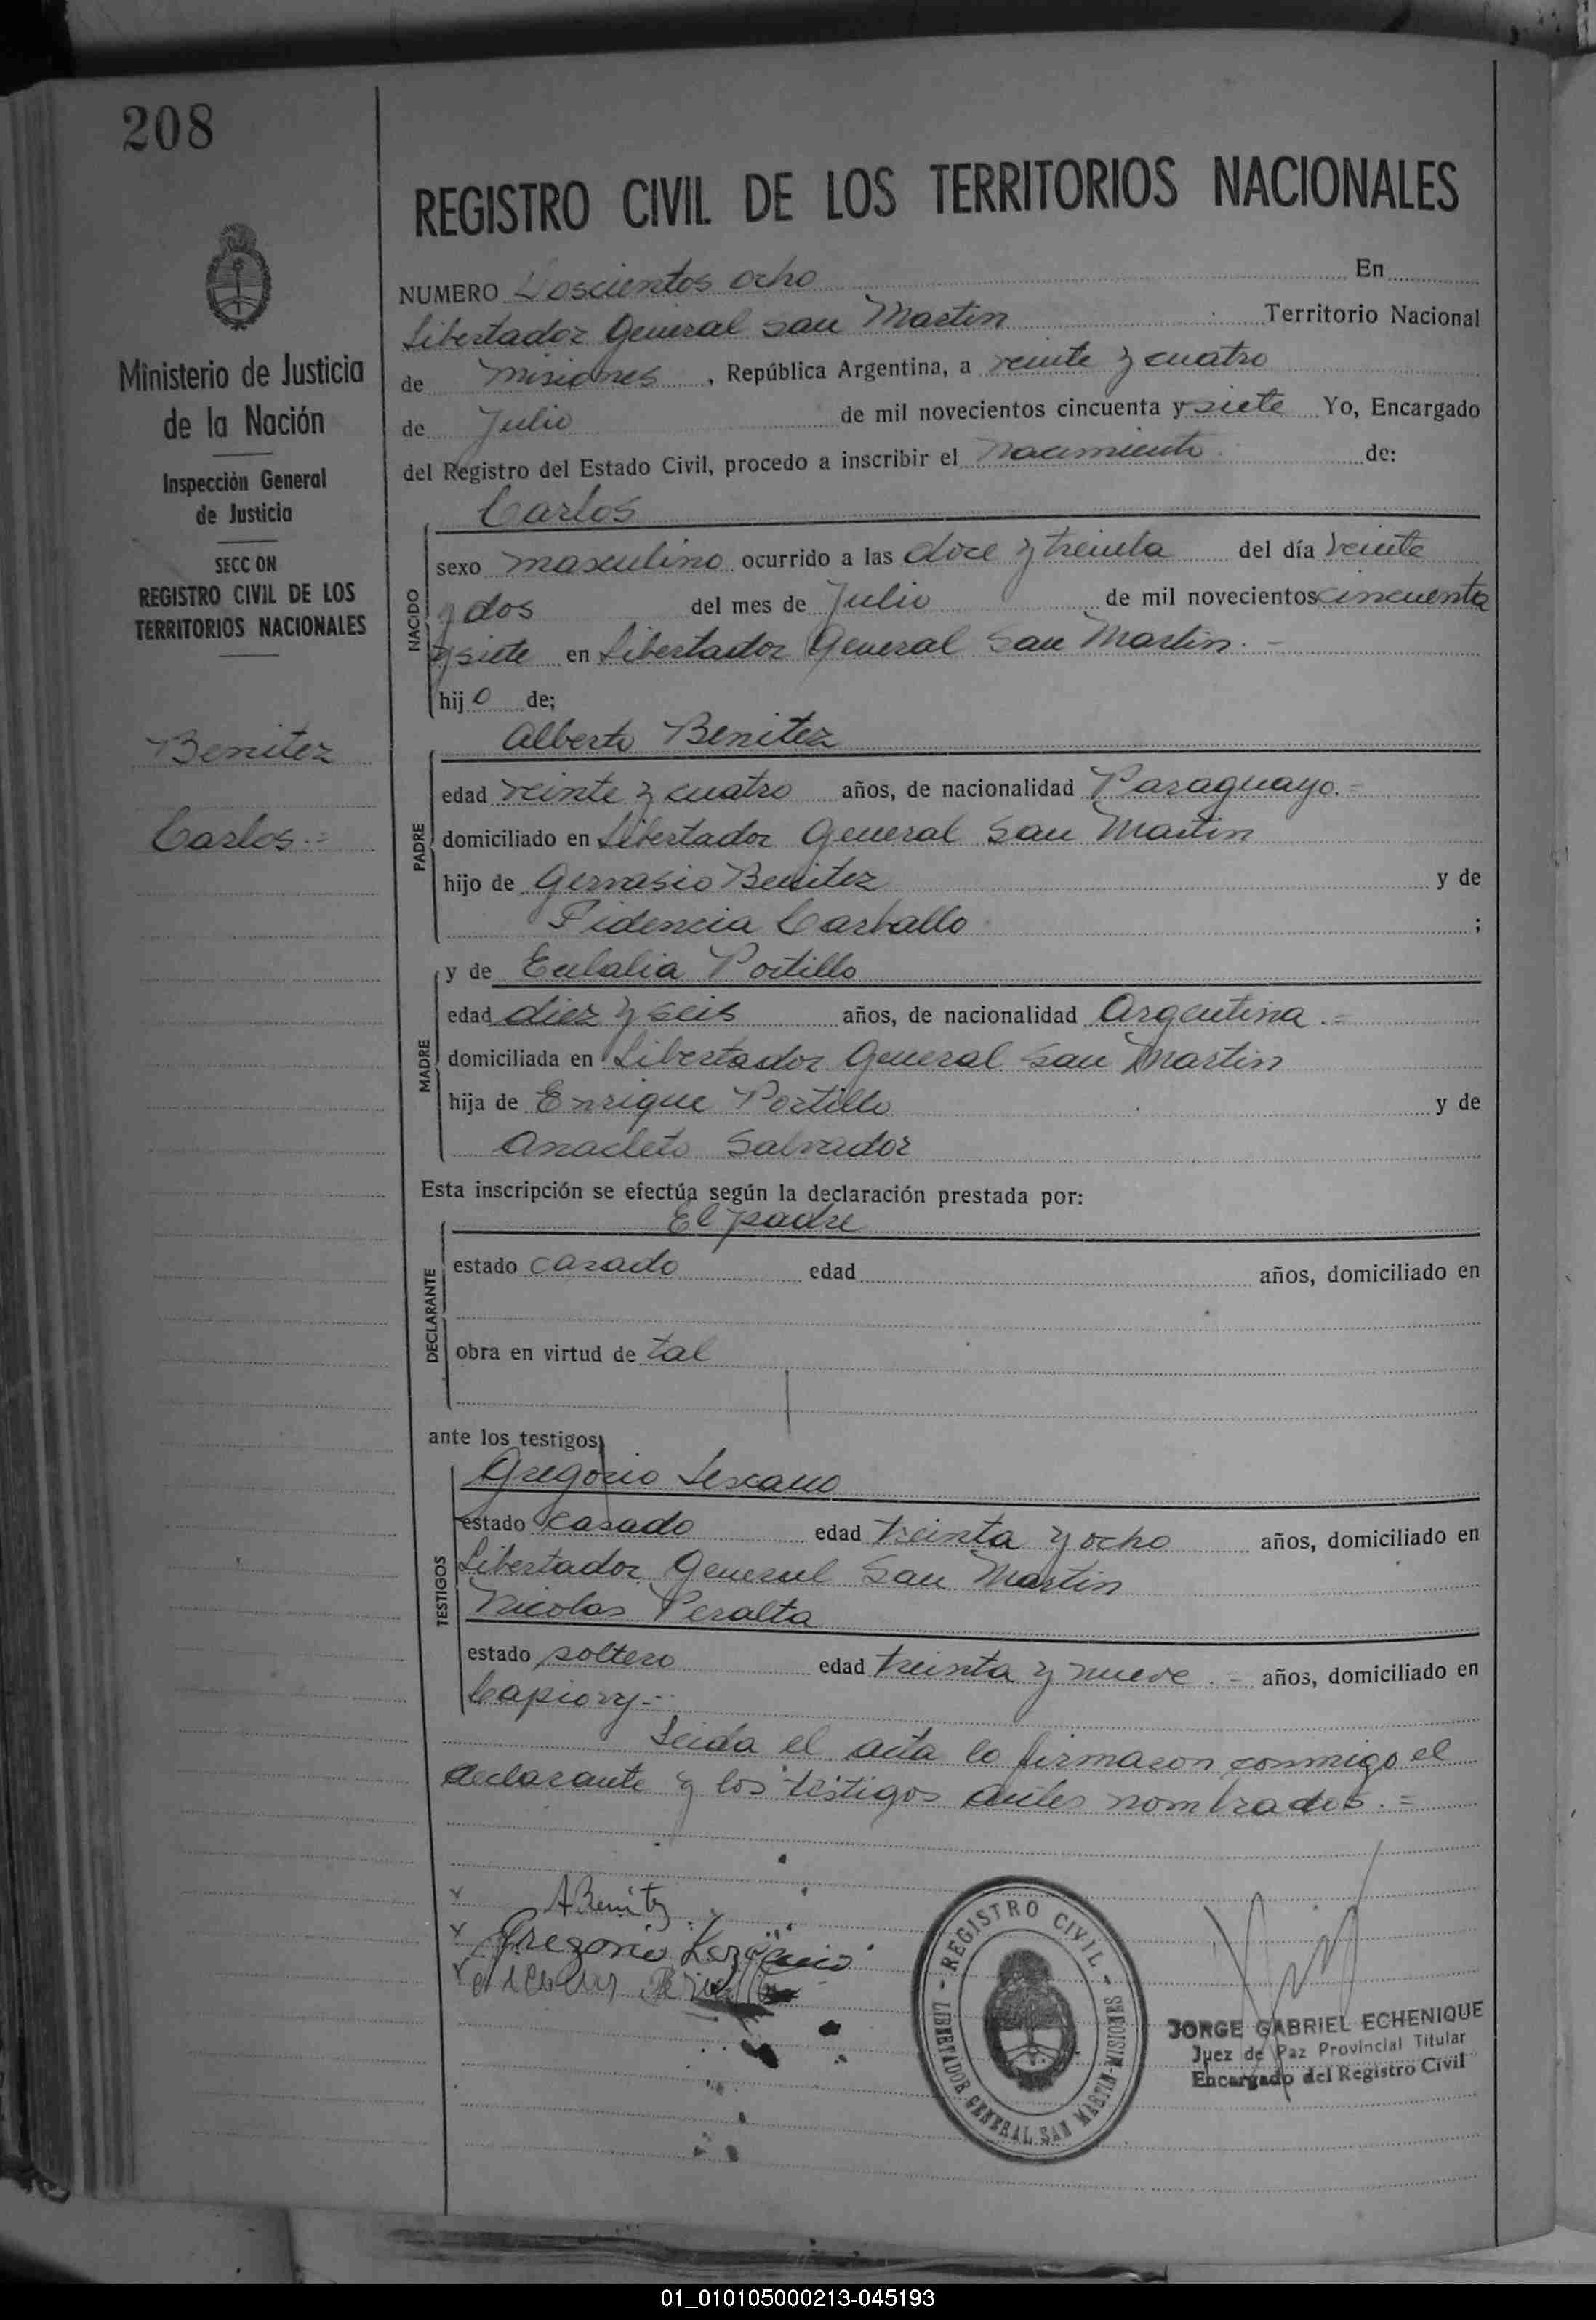 208
REGISTRO CIVIL DE LOS TERRITORIOS NACIONALES
Ministerio de Justicia
de la Nación
Inspección General
de Justicia
SECC ON
REGISTRO CIVIL DE LOS
TERRITORIOS NACIONALES
Benitez
Carlos.=
NUMERO Doscientos ocho En
Libertador General San Martin Territorio Nacional
de Misiones, República Argentina, a veinte y cuatro
de Julio de mil novecientos cincuenta y siete Yo, Encargado
del Registro del Estado Civil, procedo a inscribir el nacimiento de:
Carlos
NACIDO
sexo masculino ocurrido a las doce y treinta del día veinte
y dos del mes de Julio de mil novecientos cincuenta
y siete en Libertador General San Martin.-
hijo de;
Alberto Benitez
PADRE
edad veinte y cuatro años, de nacionalidad Paraguayo.=
domiciliado en Libertador General San Martin
hijo de Gervasio Benitez y de
Fidencia Carballo ;
y de Eulalia Portillo
MADRE
edad diez y seis años, de nacionalidad Argentina.=
domiciliada en Libertador General San Martin
hija de Enrique Portillo y de
Anacleto Salvador
Esta inscripción se efectúa según la declaración prestada por:
El padre
DECLARANTE
estado casado edad años, domiciliado en
obra en virtud de tal
ante los testigos
Gregorio Lescano
TESTIGOS
estado casado edad treinta y ocho años, domiciliado en
Libertador General San Martin
Nicolas Peralta
estado soltero edad treinta y nueve.= años, domiciliado en
Capiovy.=
Leida el acta lo firmaron conmigo el
declarante y los testigos antes nombrados.=
A Benitz
Gregorio
REGISTRO CIVIL
LIBERTADOR GENERAL SAN MARTIN-MISIONES
JORGE GABRIEL ECHENIQUE
Juez de Paz Provincial Titular
Encargado del Registro Civil
01_010105000213-045193